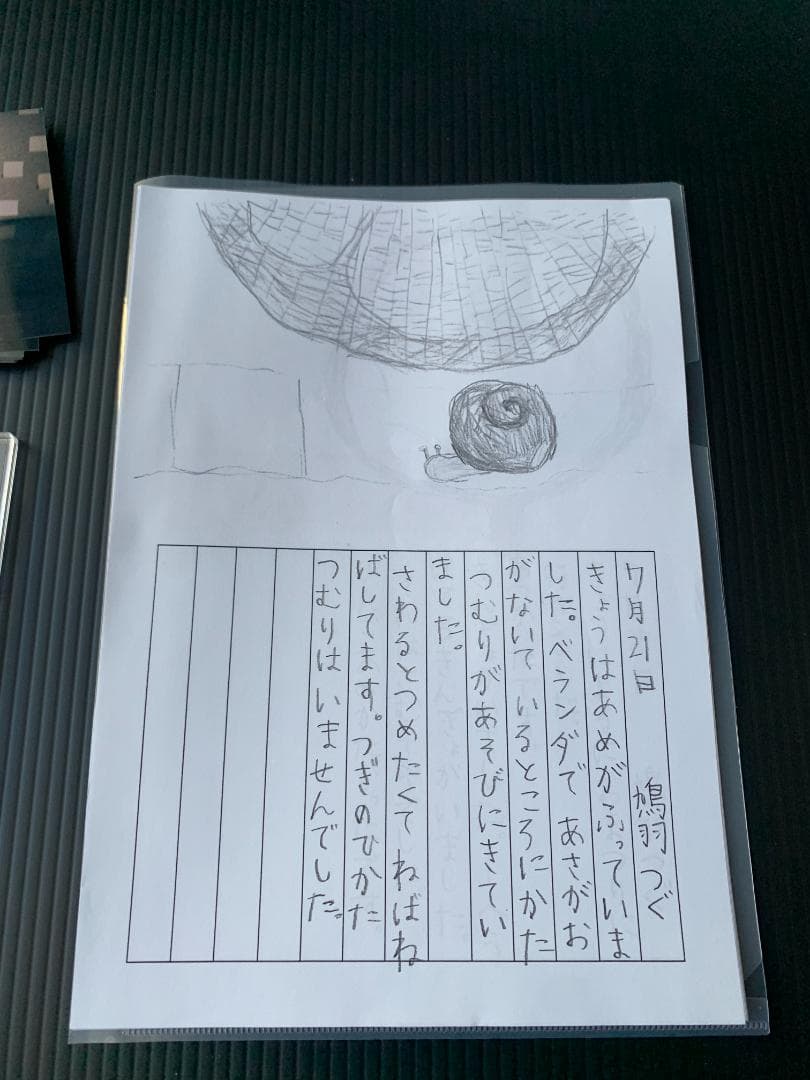 7月21日 鳩羽つぐ
きょうはあめがふっていま
した。ベランダであさがお
がないているところにかた
つむりがあそびにきてい
ました。
さわるとつめたくてねばね
ばしてます。つぎのひかた
つむりはいませんでした。